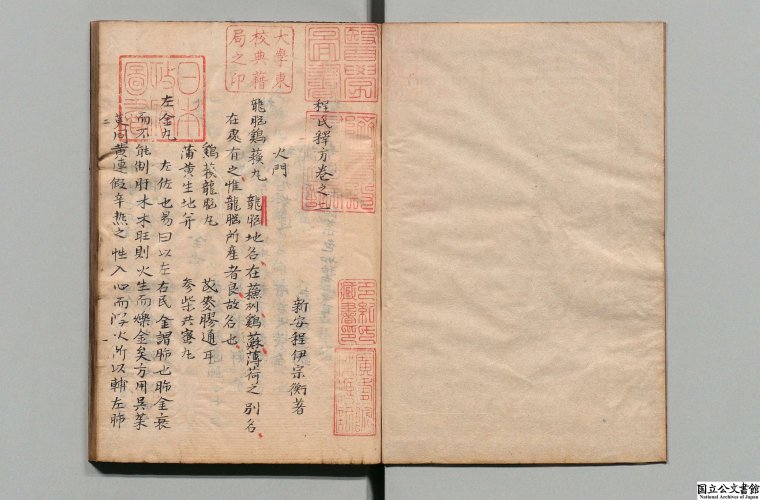 程氏釋方卷之二
新安程伊宗衡著
火門
龍腦鷄蘇丸 龍腦地名在蘇州鷄蘇薄荷之別名
在處有之惟龍腦所產者良故名也
鷄蘇龍腦丸 芪麥膠通耳
蒲黃生地并 參柴共蜜丸
左金丸 左佐也易曰以左右民金謂肺也肺金衰
而不能制肝木木旺則火生而爍金矣方用吳茱
萸同黃連假辛熱之性入心而瀉火所以輔左肺
大學東
校典籍
局之印
日本
圖書
藏書
国立公文書館
National Archives of Japan